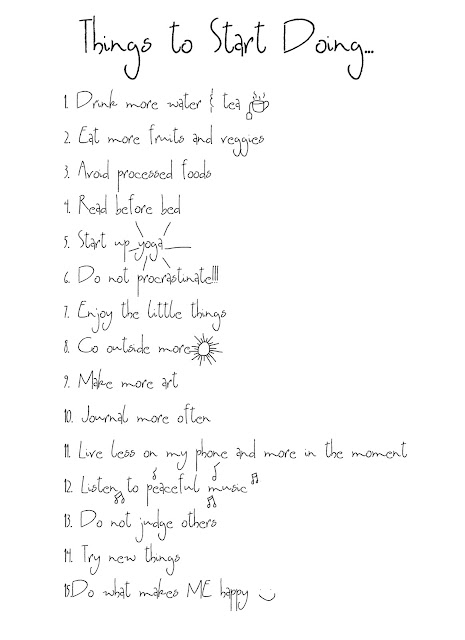 Things to Start Doing...
1. Drink more water & tea
2. Eat more fruits and veggies
3. Avoid processed foods
4. Read before bed
5. Start up yoga
6. Do not procrastinate!!!
7. Enjoy the little things
8. Go outside more
9. Make more art
10. Journal more often
11. Live less on my phone and more in the moment
12. Listen to peaceful music
13. Do not judge others
14. Try new things
15. Do what makes ME happy